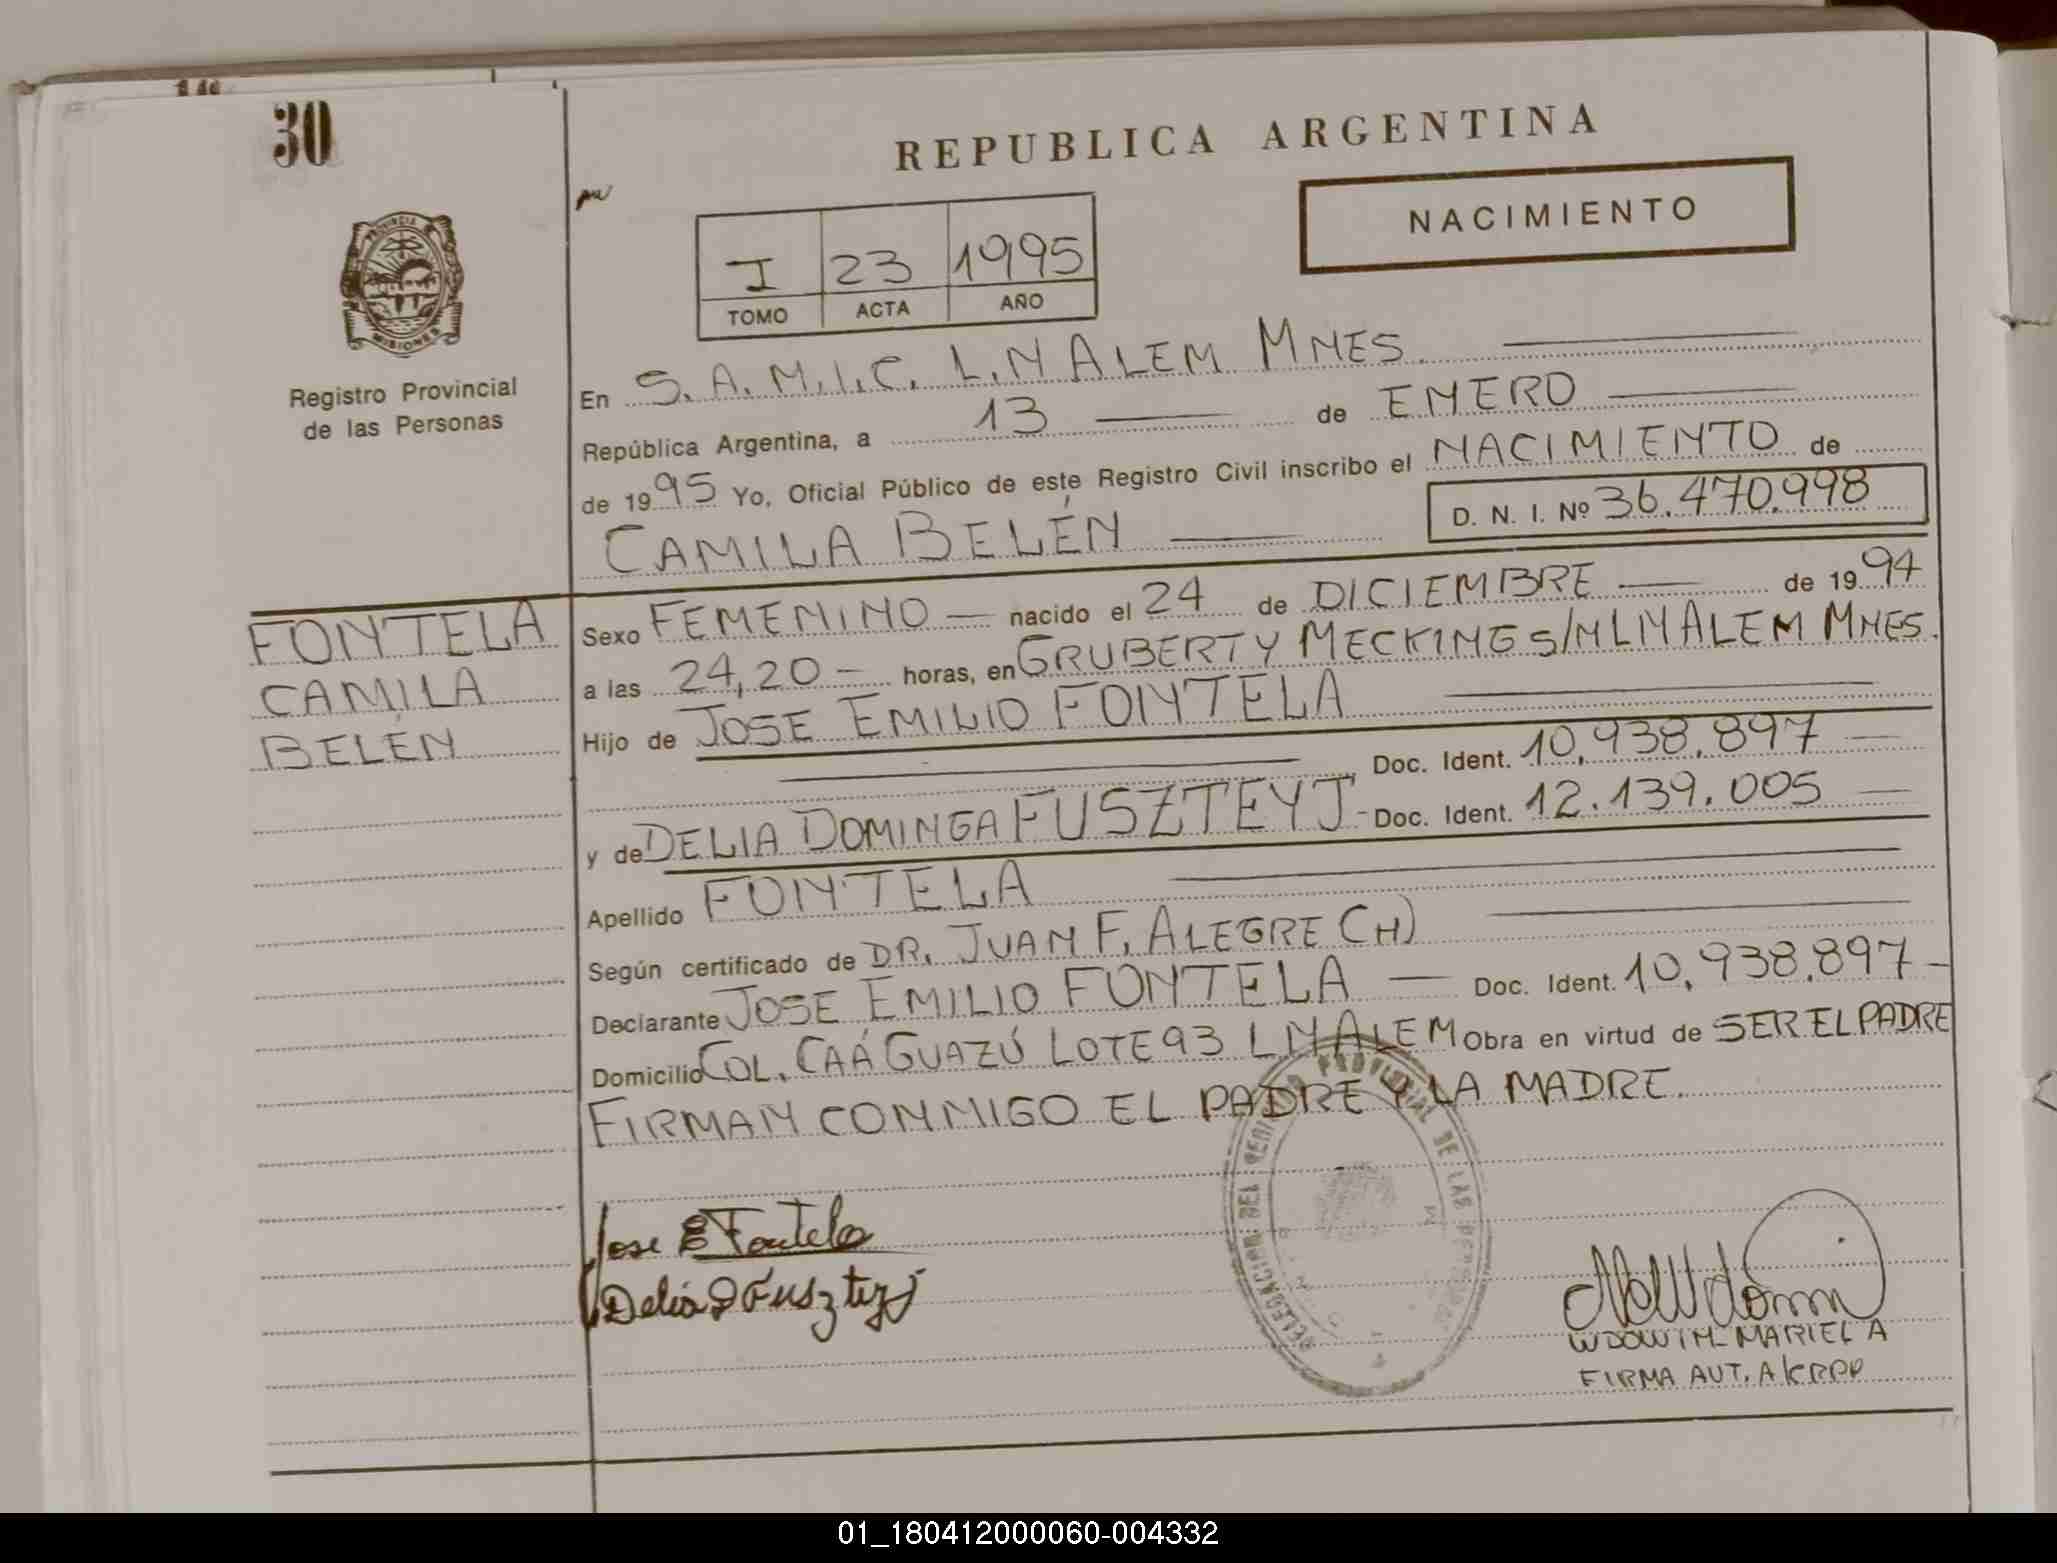 30
REPUBLICA ARGENTINA
NACIMIENTO
I 23 1995
TOMO ACTA AÑO
PROVINCIA
MISIONES
Registro Provincial
de las Personas
En S.A.M.I.C. L.N ALEM MNES.
República Argentina, a 13 de ENERO
de 1995 Yo, Oficial Público de este Registro Civil inscribo el NACIMIENTO de
CAMILA BELÉN D. N. I. Nº 36.470.998
FONTELA
CAMILA
BELÉN
Sexo FEMENINO nacido el 24 de DICIEMBRE de 1994
a las 24,20 horas, en GRUBERT Y MECKING S/N LN ALEM MNES.
Hijo de JOSE EMILIO FONTELA
Doc. Ident. 10.938.897
y de DELIA DOMINGA FUSZTEYJ Doc. Ident. 12.139.005
Apellido FONTELA
Según certificado de DR. JUAN F. ALEGRE (H)
Declarante JOSE EMILIO FONTELA Doc. Ident. 10.938.897
Domicilio COL. CAÁ GUAZÚ LOTE 93 LN ALEM Obra en virtud de SER EL PADRE
FIRMAN CONMIGO EL PADRE Y LA MADRE.
DELEGACION DEL REGISTRO PROVINCIAL DE LAS PERSONAS
Jose E Fontela
Delia D Fuszteyj
WDOWIN MARIEL A
FIRMA AUT. A K RPP
01_180412000060-004332